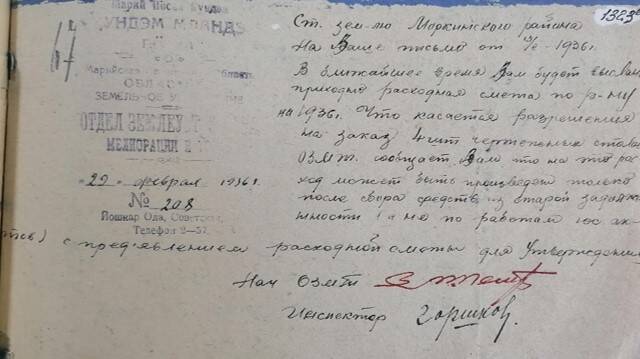 1323
67
Марий
УНДЭМ МЛАНДЭ
Марийская область
ЗЕМЕЛЬНОЕ
ОТДЕЛ ЗЕМЛЕУ
МЕЛИОРАЦИИ И
"29" феврал 1936 г.
№ 208
Йошкар Ола, Советская,
Телефон 2-57.
Ст. зем-лю Моркинского района
На Ваше письмо от 1936 г.
В ближайшее время Вам будет выслан
приходно расходная смета по р-ну
на 1936 г. Что касается разрешения
на заказ 4 шт чертежных
ОЗМТ. сообщает Вам что на это рас-
ход может быть произведен только
после сбора средств из старой задолж-
нности и но по работам гос ак-
с предъявлением расходной сметы для утверждения
Нач ОЗМТи
Инспектор Горшков.